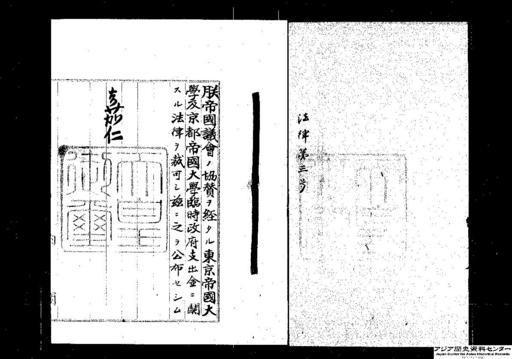 法律第三号
朕帝國議會ノ協賛ヲ経タル東京帝國大
學及京都帝國大學臨時政府支出金ニ關
スル法律ヲ裁可シ茲ニ之ヲ公布セシム
嘉仁
天皇
御璽
アジア歴史資料センター
Japan Center for Asian Historical Records